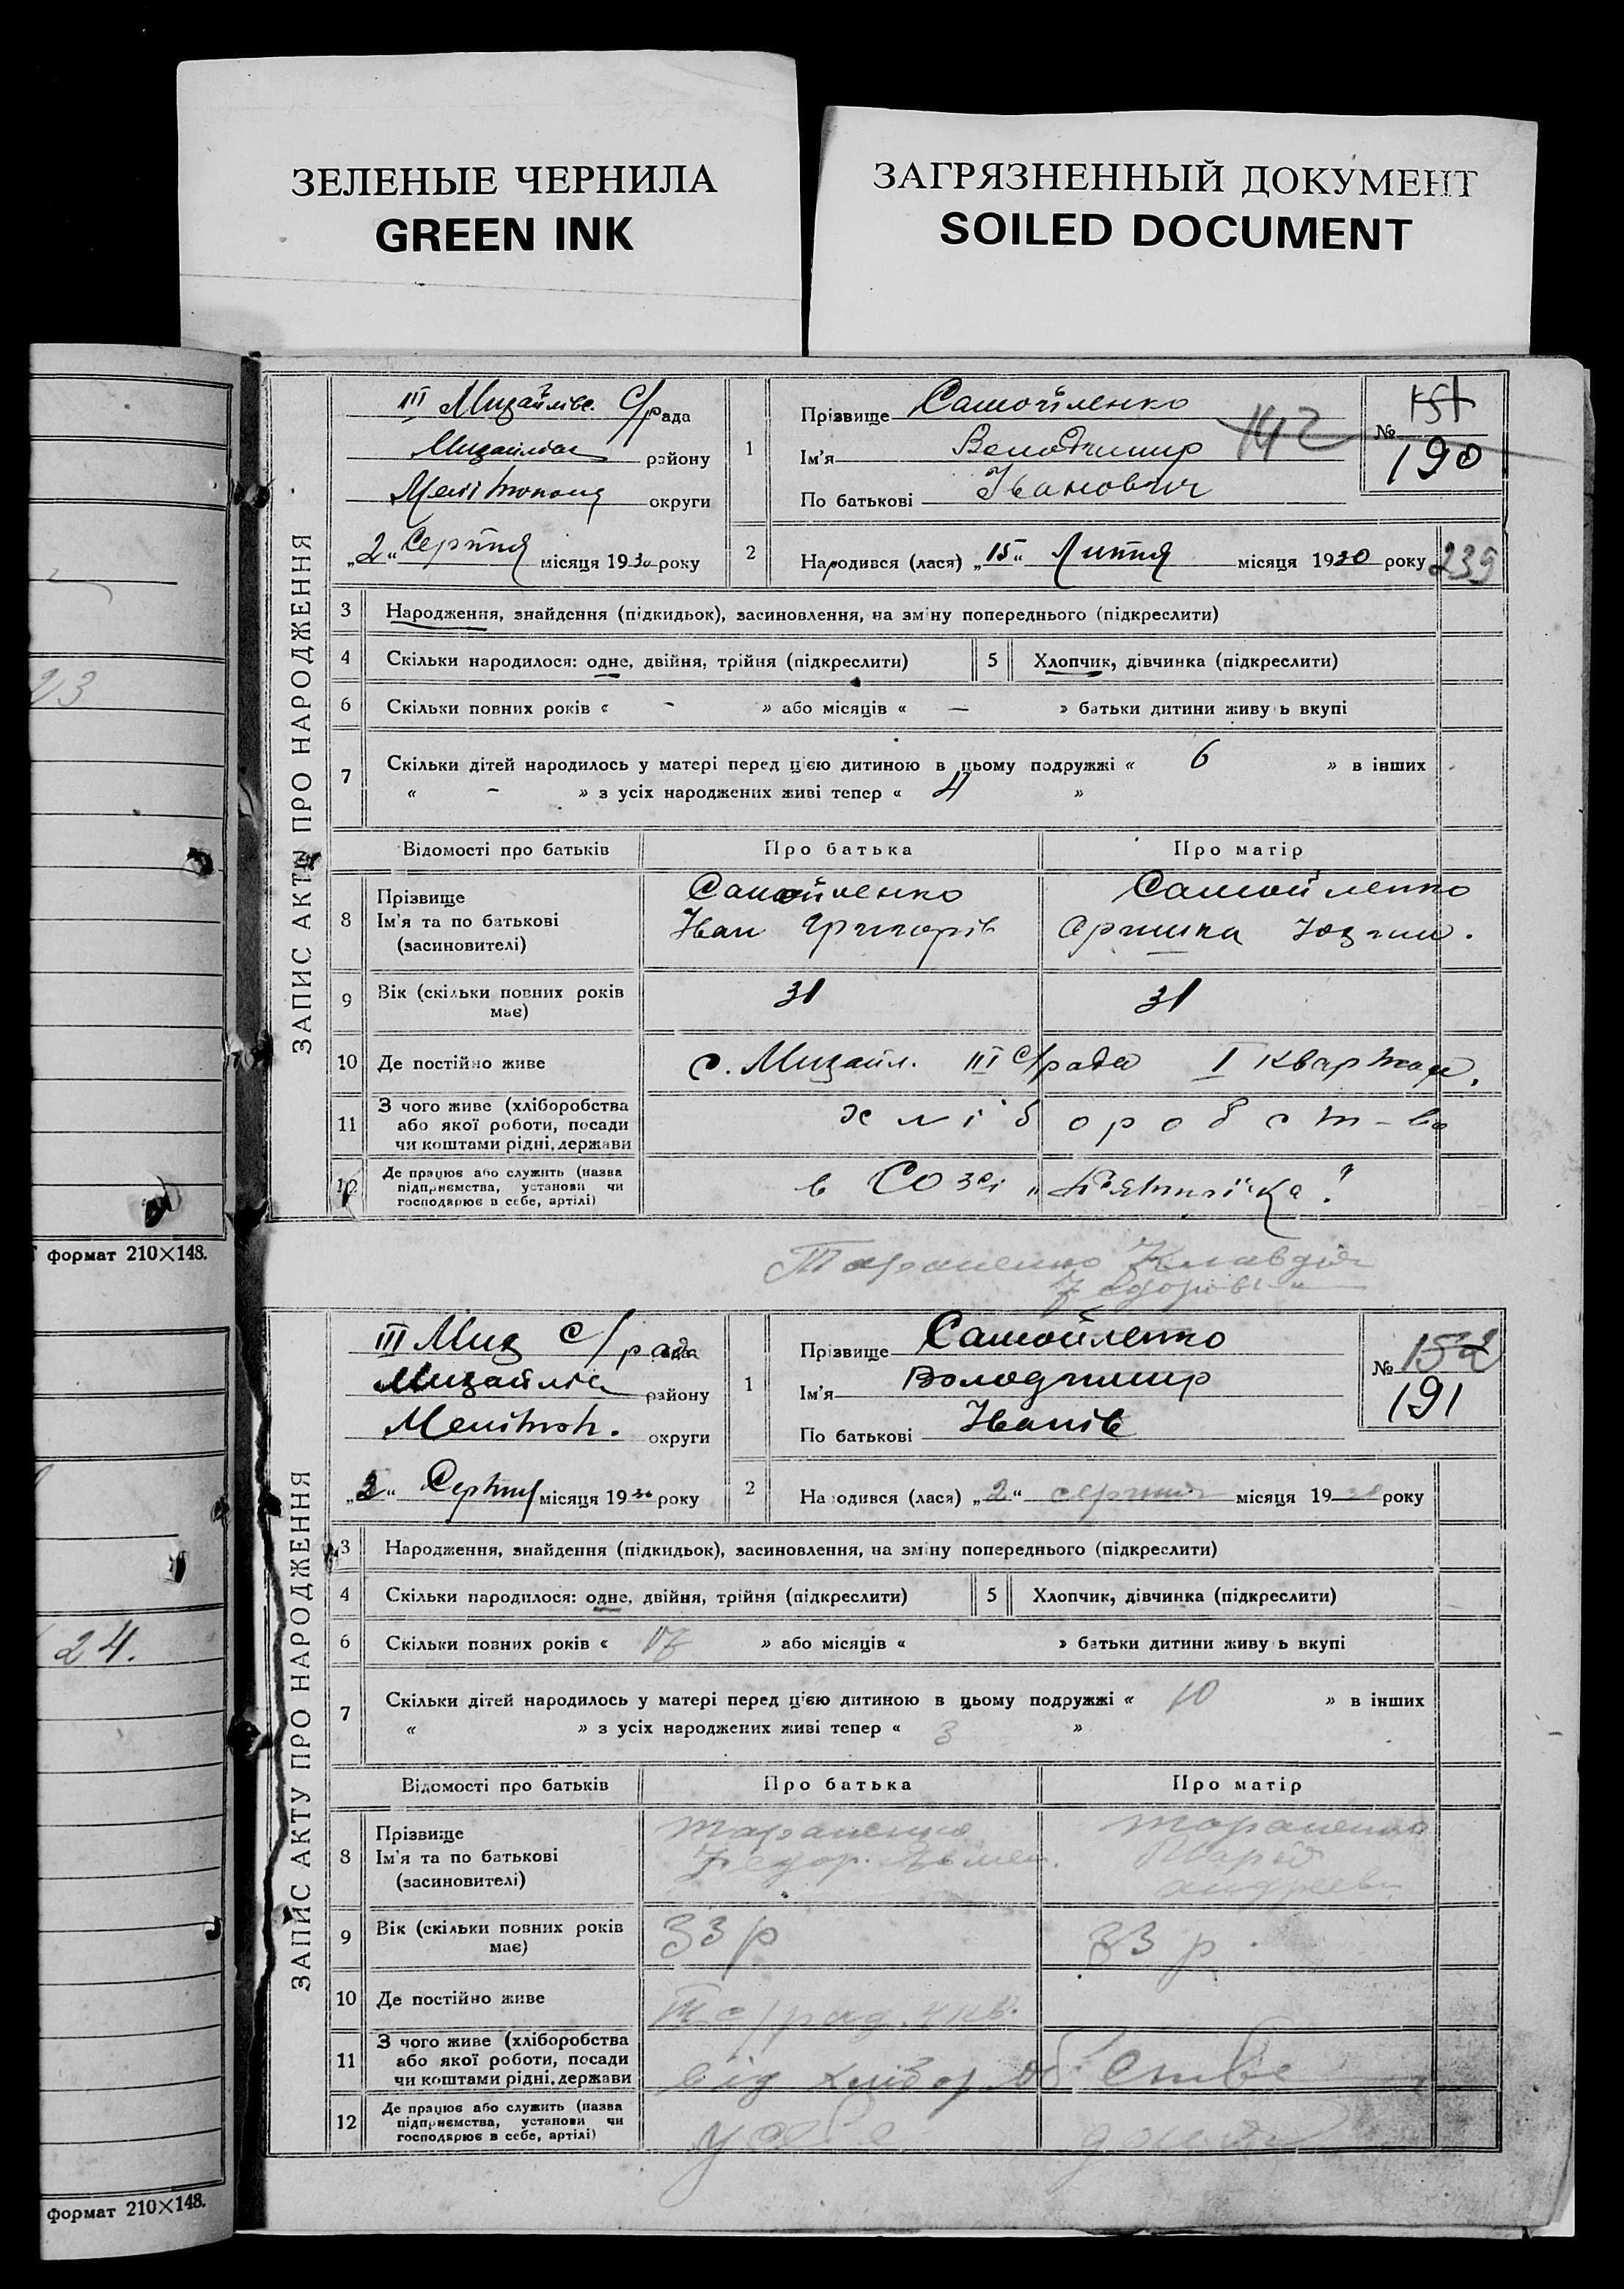 ЗЕЛЕНЫЕ ЧЕРНИЛА
GREEN INK
ЗАГРЯЗНЕННЫЙ ДОКУМЕНТ
SOILED DOCUMENT
23
формат 210×148.
24.
формат 210×148.
ЗАПИС АКТУ ПРО НАРОДЖЕННЯ
III Михайлівс. С/рада
району
округи
„2“ Серпня місяця 1930 року
1
Прізвище Самойленко
Ім'я Володимир
По батькові Іванович
142
№ 151
190
2
Народився (лася) „15“ Липня місяця 1930 року
239
3 Народження, знайдення (підкидьок), засиновлення, на зміну попереднього (підкреслити)
4 Скільки народилося: одне, двійня, трійня (підкреслити)
5 Хлопчик, дівчинка (підкреслити)
6 Скільки повних років « - » або місяців « — » батьки дитини живуть вкупі
7 Скільки дітей народилось у матері перед цією дитиною в цьому подружжі « 6 » в інших
« - » з усіх народжених живі тепер « 4 »
Відомості про батьків
Про батька
Про матір
8 Прізвище
Ім'я та по батькові
(засновителі)
Самойленко
Іван Григорів
Самойленко
9 Вік (скільки повних років
має)
31
31
10 Де постійно живе
с. Михайл. III с/рада I квартал.
11 З чого живе (хліборобства
або якої роботи, посади
чи коштами рідні, держави
хліборобст-во
12 Де працює або служить (назва
підприємства, установи чи
господарює в себе, артілі)
в СОЗі
Тараненко Клавдія
Федорівна
ЗАПИС АКТУ ПРО НАРОДЖЕННЯ
III Мих с/рада
району
Меліtоп. округи
Серпня місяця 1930 року
1
Прізвище Самойленко
Ім'я Володимир
По батькові Іванів
№ 152
191
2
Народився (лася) „2“ серпня місяця 1930 року
3 Народження, знайдення (підкидьок), засиновлення, на зміну попереднього (підкреслити)
4 Скільки народилося: одне, двійня, трійня (підкреслити)
5 Хлопчик, дівчинка (підкреслити)
6 Скільки повних років « » або місяців « » батьки дитини живуть вкупі
7 Скільки дітей народилось у матері перед цією дитиною в цьому подружжі « 10 » в інших
« » з усіх народжених живі тепер « 3 »
Відомості про батьків
Про батька
Про матір
8 Прізвище
Ім'я та по батькові
(засиновителі)
Тараненко
Федор.
Тараненко
Марія
Андреевн
9 Вік (скільки повних років
має)
33 р
33 р.
10 Де постійно живе
11 З чого живе (хліборобства
або якої роботи, посади
чи коштами рідні, держави
від хлібор
12 Де працює або служить (назва
підприємства, установи чи
господарює в себе, артілі)
у себе